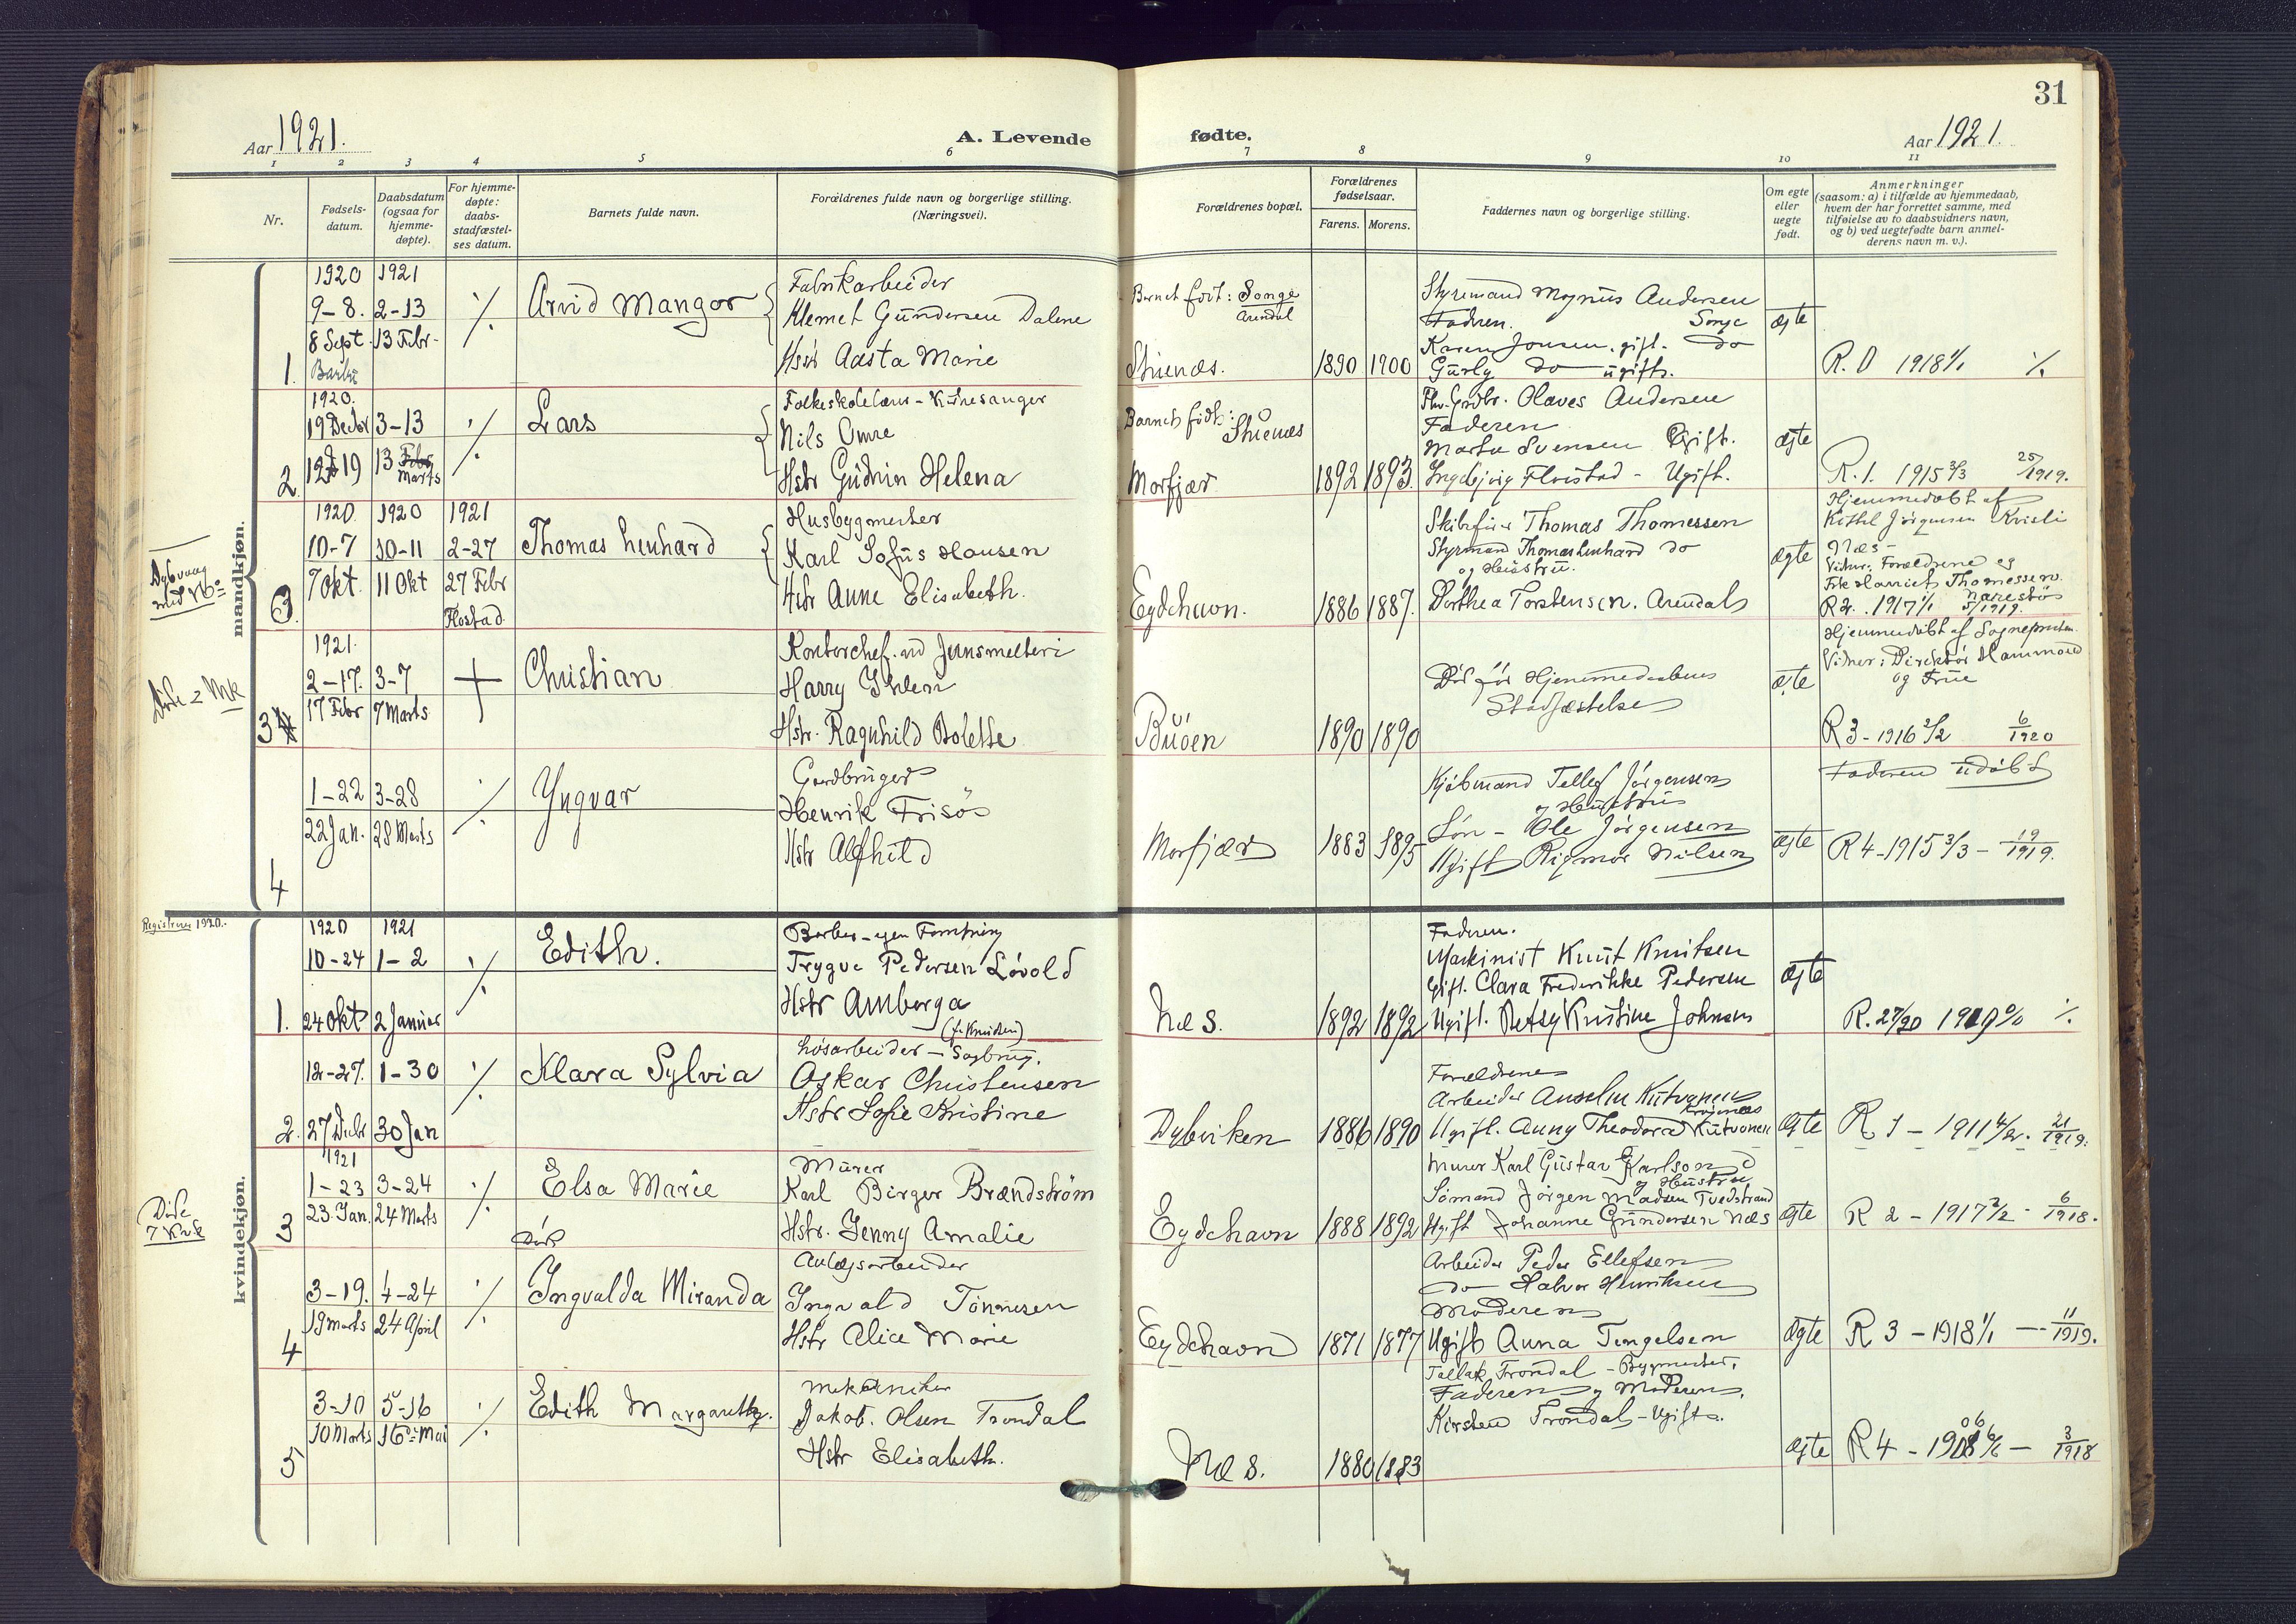 31
Aar 1921.
A. Levende fødte.
Aar 1921.
1 2 3 4 5 6 7 8 9 10 11
Nr.
Fødsels-
datum.
Daabsdatum
(ogsaa for
hjemme-
døpte).
For hjemme-
døpte:
daabs-
stadfæstel-
ses datum.
Barnets fulde navn.
Forældrenes fulde navn og borgerlige stilling.
(Næringsvei).
Forældrenes bopæl.
Forældrenes
fødselsaar.
Farens. Morens.
Faddernes navn og borgerlige stilling.
Om egte
eller
uegte
født.
Anmerkninger
(saasom: a) i tilfælde av hjemmedaab,
hvem der har forrettet samme, med
tilføielse av to daabsvidners navn,
og b) ved uegtefødte barn anmel-
derens navn m. v.).
mandkjøn.
1.
1920 1921
9-8. 2-13
8 Sept. 13 Febr.
Arvid Mangor
Fabrikarbeider
Klemet Gundersen Dalene
Hstr Aasta Marie
Barnet født: Songe
Arendal
Stuenæs.
1890 1900
Styremand Magnus Andersen
Faderen. Songe
Karen Jonsen. gift. do
Gurly do ugift.
ægte
R. 0 1918 1/1 ./.
2.
1920.
19 Decbr 3-13
12 19 13 Febr
Marts
Lars
Nils Omre
Hstr Gudrun Helena
Barnet født:
Stuenæs
Morfjær
1892 1893.
Olaves Andersen
Faderen
Marta Svensen Gift.
Flovstad - Ugift.
ægte
R. 1. 1915 3/3 25/1919.
Dybvaag
3.
1920 1920 1921
10-7 10-11 2-27
7 Okt. 11 Okt 27 Febr
Flostad
Thomas Lenhard
Husbygmester
Karl Sofus Hansen
Hstr Anne Elisabeth.
Eydehavn.
1886 1887.
Skibsfører Thomas Thomessen
Styrmand Thomas Lenhard do
og Hustru.
Dorthea Torstensen. Arendal
ægte
Hjemmedøbt af
Kittel Jørgensen Kvisli
Næs -
Vidner: Forældrene og
Frk Harriet Thomessen.
Narestø
R 2. 1917 1/1 5/1919.
3 4
1921.
2-17. 3-7
17 Febr 7 Marts
Christian
Kontorchef. ved Jernsmelteri
Harry Ihlen
Hstr. Ragnhild Bolette
Buøen
1890 1890
Død før Hjemmedaabens
Stadfæstelse
ægte
Hjemmedøbt af Sognepresten.
Vidner: Direktør Hammond
og Frue
R 3 - 1916 2/2 6/1920
4
1-22 3-28
22 Jan. 28 Marts
Yngvar
Gardbruger
Henrik Frisø
Hstr Alfhild
Morfjær
1883 1895
Kjøbmand Tellef Jørgensen
og Hustru
Søn - Ole Jørgensen
Ugift Rigmor Nilsen
ægte
Faderen udøbt
R 4 - 1915 3/3 - 19/1919.
kvindekjøn.
Registreres 1920.
1.
1920 1921
10-24 1-2
24 Okt 2 Januar
Edith.
Barber - egen Forretning
Trygve Pedersen Løvold
Hstr Amborga
(f. Knudsen)
Næs.
1892 1892
Faderen.
Maskinist Knut Knutsen
Gift. Clara Frederikke Pedersen
Ugift. Betsy Kristine Johnsen
ægte
R. 27/20 1919 0/0 ./.
2.
12-27. 1-30
27 Decbr 30 Jan
Klara Sylvia
Løsarbeider - Sagbrug.
Oskar Christensen
Hstr Sofie Kristine
Dybviken
1886 1890
Forældrene
Arbeider Anselm Kutvonen
Ugift. Anny Theodora Kutvonen
ægte
R 1 - 1911 4/2. 21/1919.
3
1921
1-23 3-24
23. Jan. 24 Marts
Elsa Marie
Død
Murer
Karl Birger Brændstrøm
Hstr. Jenny Amalie
Eydehavn
1888 1892
Murer Karl Gustav Karlson
og Hustru
Sømand Jørgen Madsen Tvedstrand
Ugift Johanne Gundersen Næs
ægte
R 2 - 1917 2/2 - 6/1918.
4
3-19. 4-24
19 Marts 24 April
Ingvalda Miranda
Anlægsarbeider
Ingvald Tønnesen
Hstr Alice Marie
Eydehavn
1871 1877
Arbeider Peder Ellefsen
do Halvor Henriksen
Moderen
Ugift Anna Tengelsen
ægte
R 3 - 1918 1/1 - 11/1919.
5
3-10 5-16
10 Marts 16de Mai
Edith Margareth.
Mekaniker
Jakob. Olsen Trondal
Hstr Elisabeth.
Næs.
1880 1883
Tallak Trondal - Bygmester.
Faderen og Moderen.
Kirsten Trondal - Ugift.
ægte
R 4 - 1908 6/6 - 3/1918